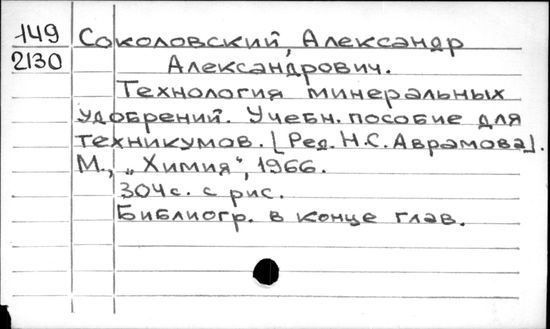 149
2130
Соколовский, Александр
Александрович.
Технология минеральных
удобрений. Учебн. пособие для
техникумов. [Ред. Н.С. Аврамова].
М., „Химия", 1966.
304с. с рис.
Библиогр. в конце глав.